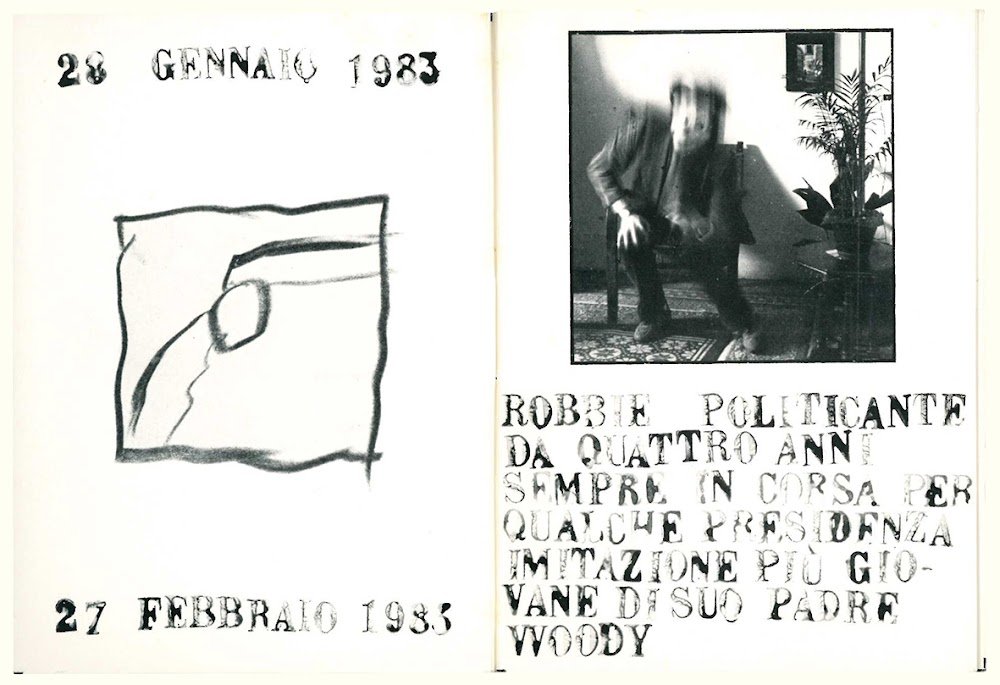 28 GENNAIO 1983
27 FEBBRAIO 1983
ROBBIE POLITICANTE
DA QUATTRO ANNI
SEMPRE IN CORSA PER
QUALCHE PRESIDENZA
IMITAZIONE PIÙ GIO-
VANE DI SUO PADRE
WOODY